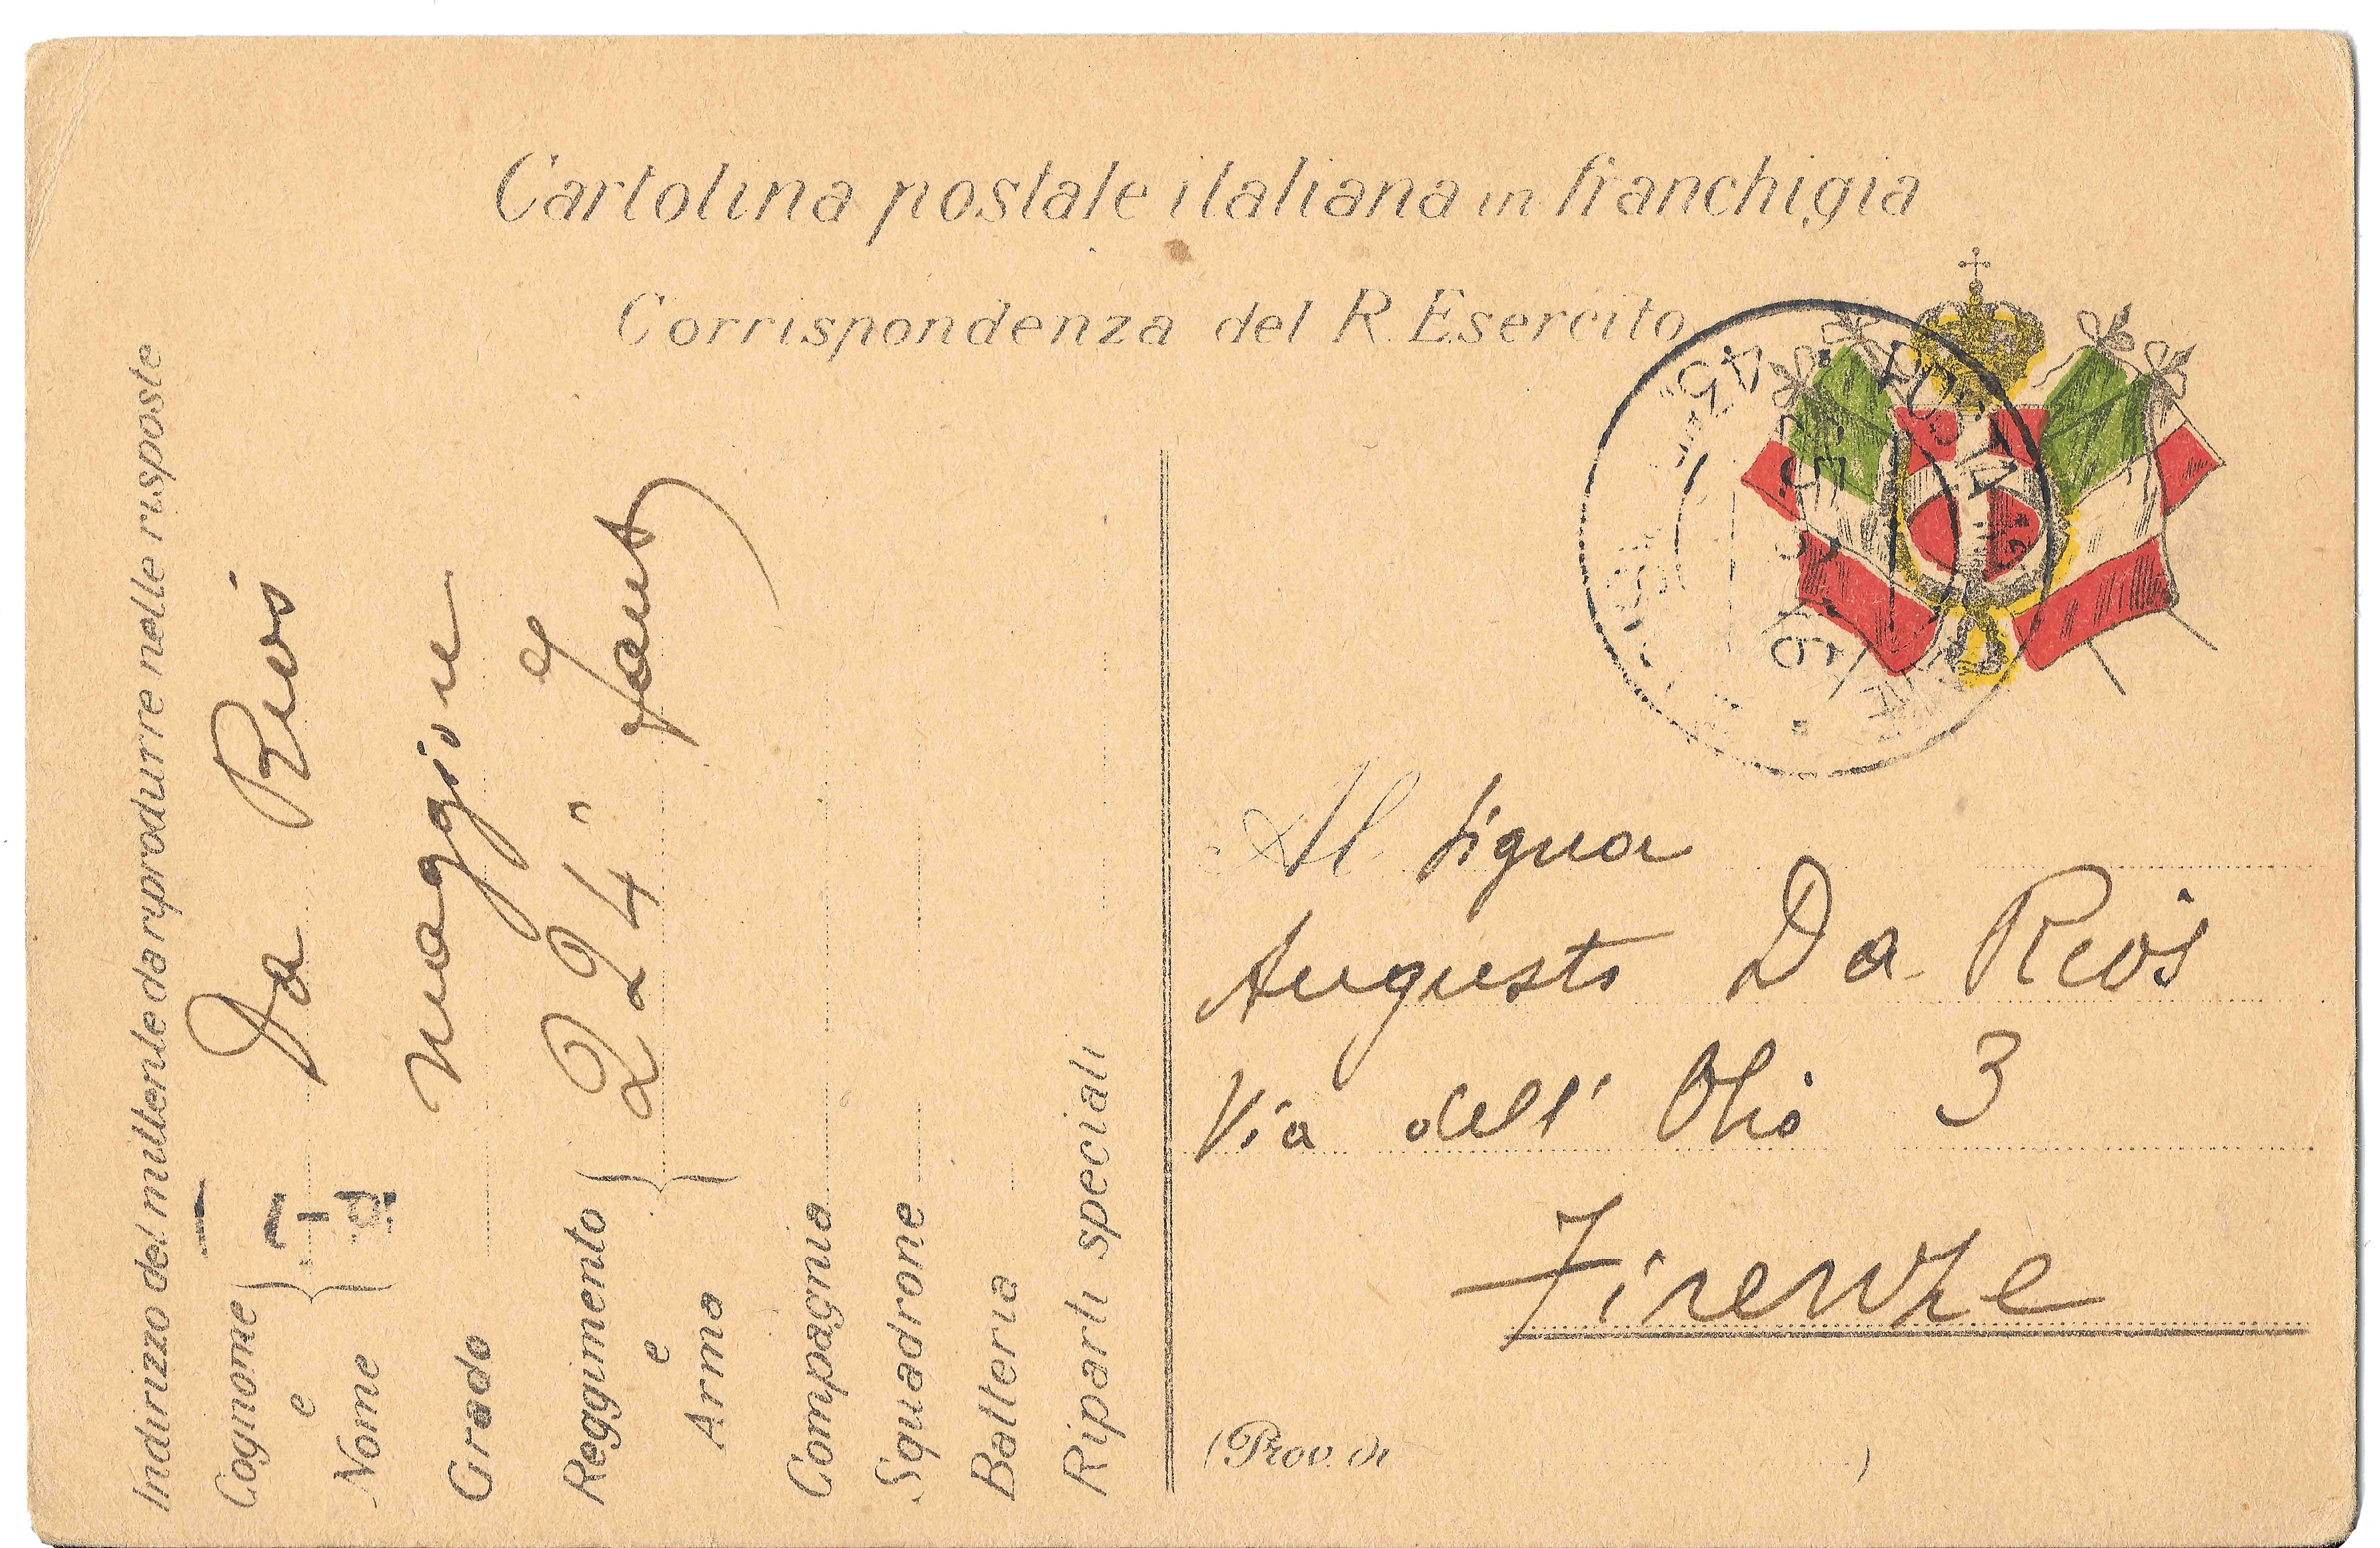 Cartolina postale italiana in franchigia
Corrispondenza del R. Esercito
Indirizzo del mittente da riprodurre nelle risposte
Cognome e Nome
Da Rios
Grado
maggiore
Reggimento e Arma
224° Fant
Compagnia
Squadrone
Batteria
Riparti speciali
Al Signor
Augusto Da Rios
Via dell' Olio 3
Firenze
(Prov. di )
45